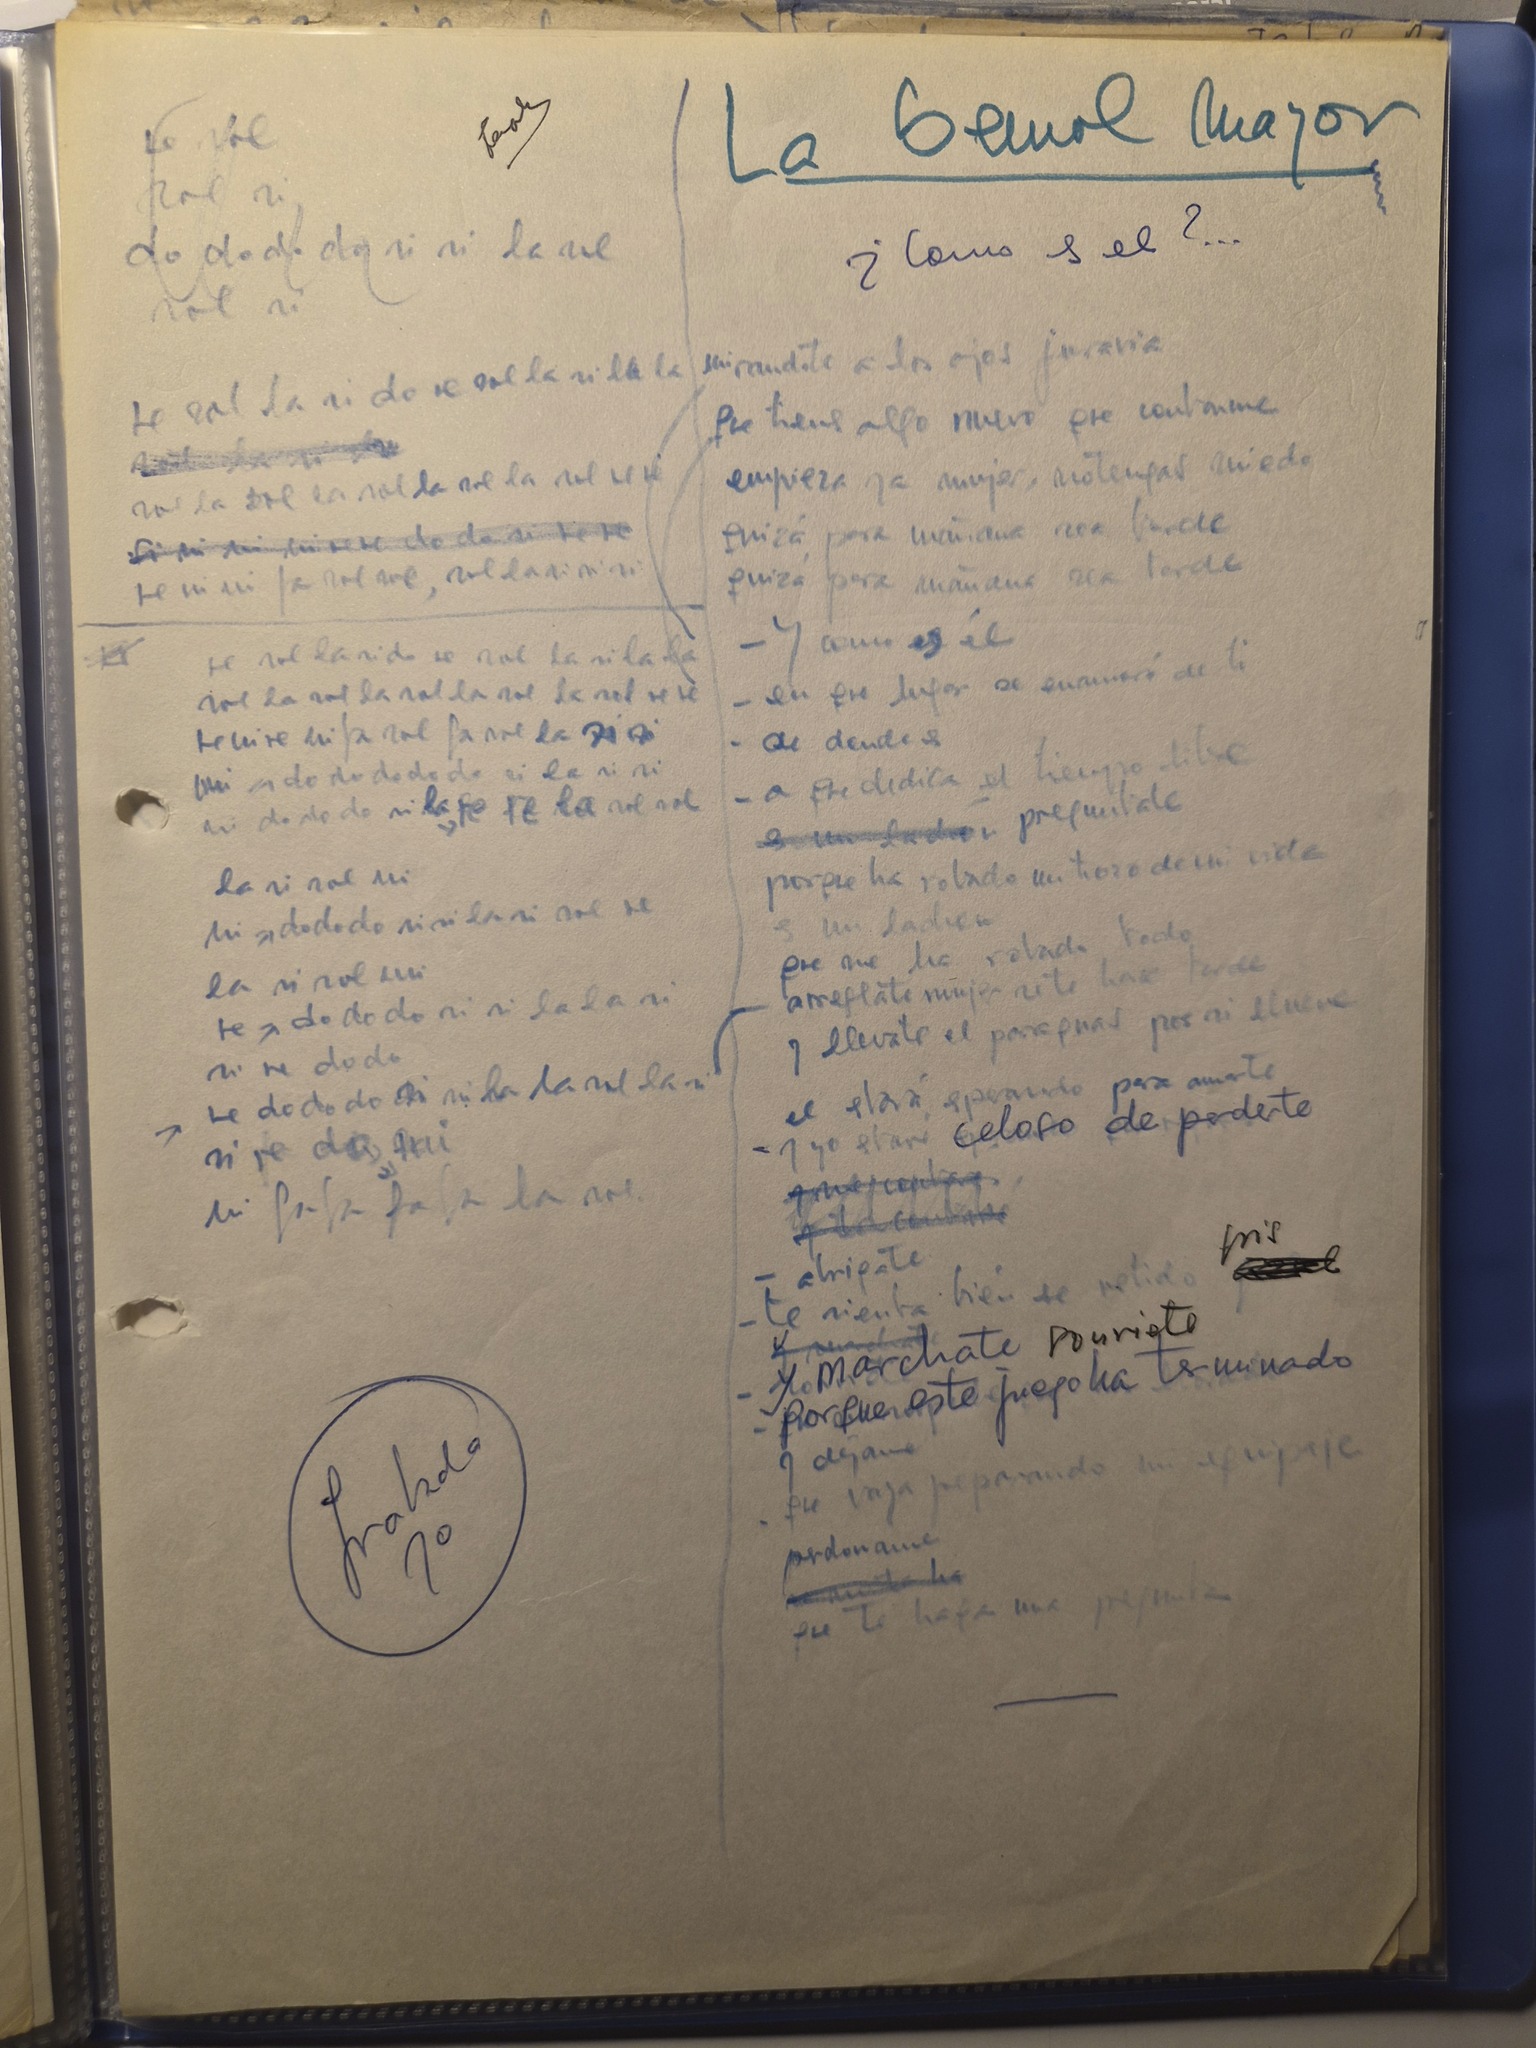 La bemol mayor
¿Como es el?...
re sol
sol si
do do do do si si la sol
sol si
re sol la si do re sol la si la la
sol la sol la sol la sol la sol re re
re mi mi fa sol sol, sol la si si si
re sol la si do re sol la si la la
sol la sol la sol la sol la sol re re
re mi re mi fa sol fa sol la si si
mi do do do do do si la si si
mi do do do si la re re la sol sol
la si sol mi
mi do do do si si la si sol re
la si sol mi
re do do do si si la la si
si re do do
re do do do si si la la sol la si
si re do mi
mi fa fa fa fa la sol
Grabada
10
mirandote a los ojos juraria
que tienes algo nuevo que contarme
empieza ya mujer, no tengas miedo
quizá para mañana sea tarde
quizá para mañana sea tarde
- Y como es él
- en que lugar se enamoró de ti
- de donde es
- a que dedica el tiempo libre
es un ladrón preguntale
porque ha robado un trozo de mi vida
es un ladron
que me ha robado todo
arreglate mujer se te hace tarde
y llevate el paraguas por si llueve
el estará esperando para amarte
- y yo estare celoso de perderte
- abrigate
gris
- te sienta bien ese vestido
y marchate sonriete
porque este juego ha terminado
y dejame
que vaya preparando mi equipaje
perdoname
que te haga una pregunta